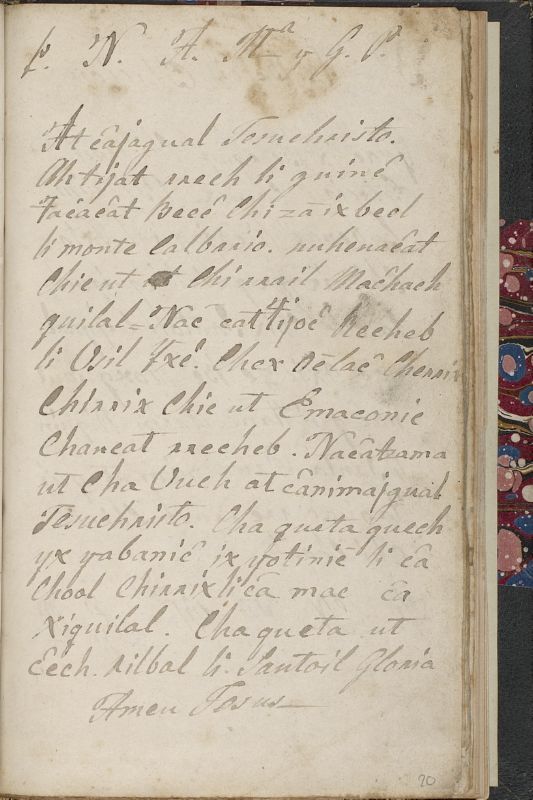 p. N. A. Mª y G. Pª
At câjagual Jesuchristo.
Ah tijat rrech li quinê
Tâcacât Pecê Chi zaixbeel
li monte Calbario. ruhenacât
Chi e ut Chi rrail Machach
quilal = Nac cat tijoê Recheb
li Vsil Yxê. Chex Chirrix
Chirrix Chi e ut Emaconic
Chaneat rrecheb. Nacâtzama
ut Cha Vuch at cânimajgual
Jesuchristo. Cha queta quech
yx yabanic ix yotinic li câ
Chool Chirrix li câ mac câ
Xiquilal. Cha queta ut
Eech. rilbal li Santoil Gloria
Amen Jesus
20